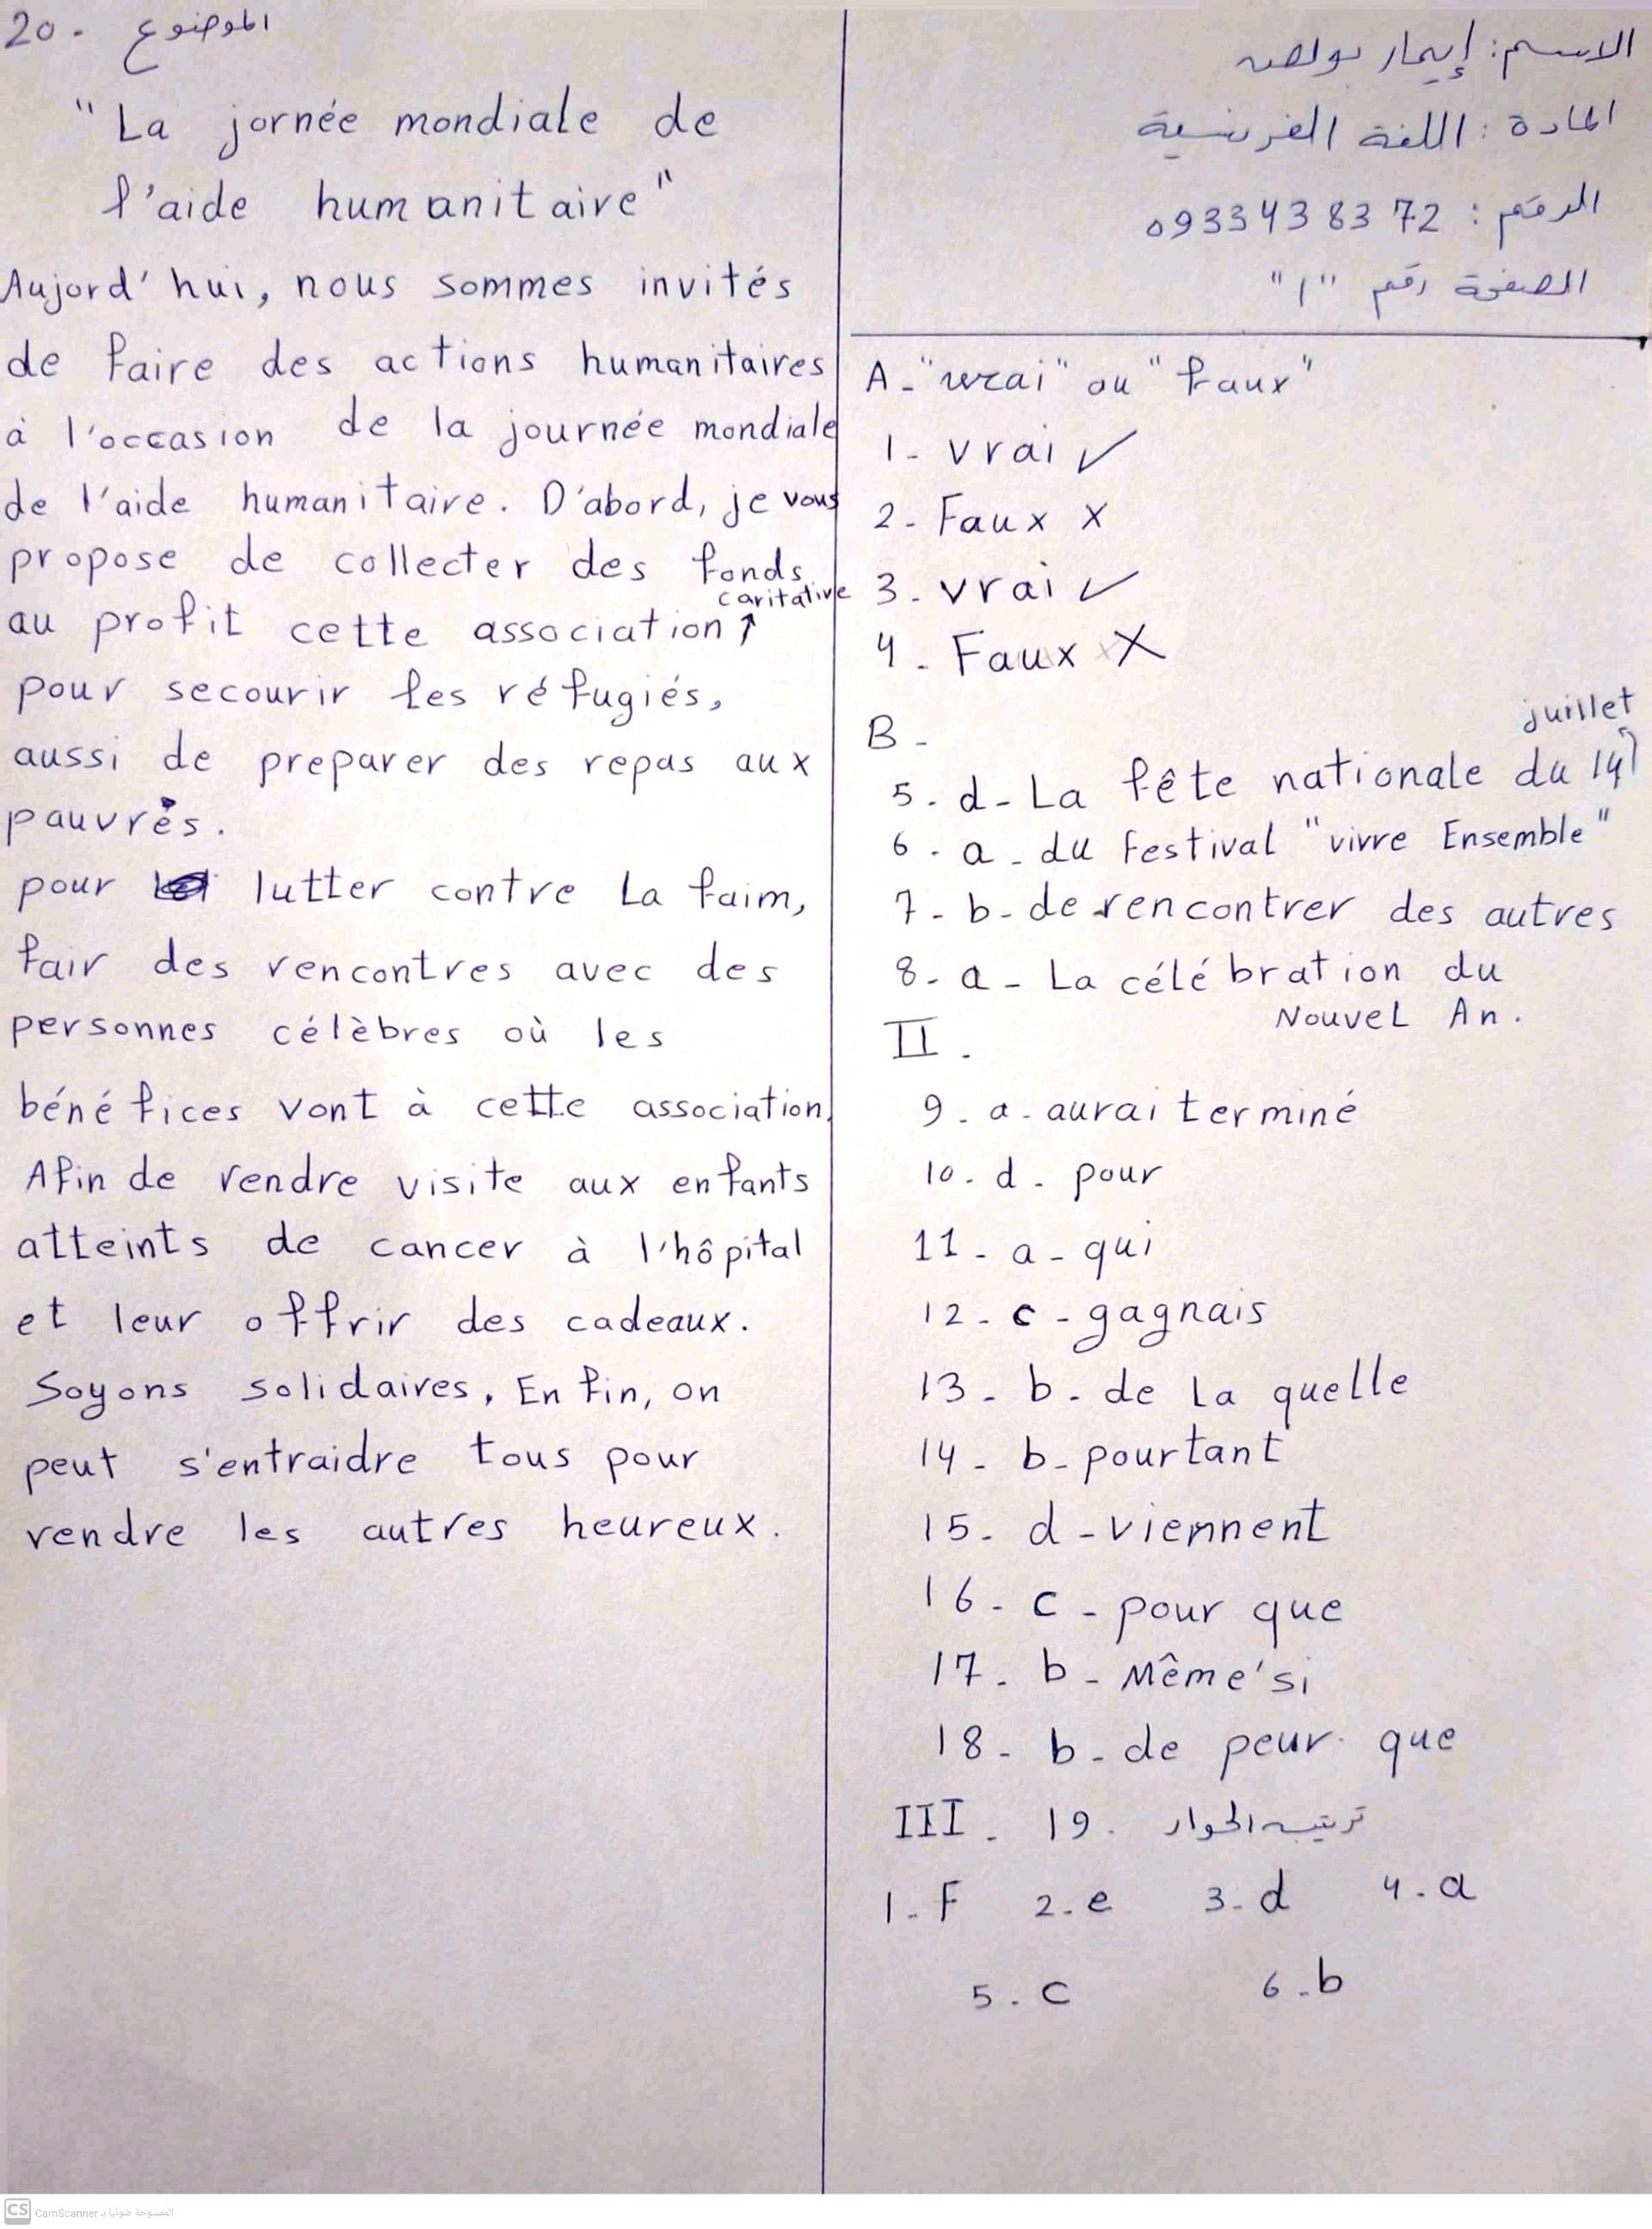 الاسم: إيمار بولص
المادة: اللغة الفرنسية
الرقم: 0933438372
الصفحة رقم "1"
A - "vrai" ou "faux"
1 - vrai ✓
2 - Faux X
3 - vrai ✓
4 - Faux X
B -
5 - d - La fête nationale du 14 juillet
6 - a - du Festival "vivre Ensemble"
7 - b - de rencontrer des autres
8 - a - La célébration du
Nouvel An.
II -
9 - a - aurai terminé
10 - d - pour
11 - a - qui
12 - c - gagnais
13 - b - de la quelle
14 - b - pourtant
15 - d - viennent
16 - c - pour que
17 - b - Même'si
18 - b - de peur que
III - 19. ترتيب الحوار
1 - F 2 - e 3 - d 4 - a
5 - c 6 - b
20 - الموضوع
"La jornée mondiale de
l'aide humanitaire"
Aujord'hui, nous sommes invités
de faire des actions humanitaires
à l'occasion de la journée mondiale
de l'aide humanitaire. D'abord, je vous
propose de collecter des fonds
au profit cette association caritative
pour secourir les réfugiés,
aussi de preparer des repas aux
pauvrès.
pour lutter contre La faim,
fair des rencontres avec des
personnes célèbres où les
bénéfices vont à cette association.
Afin de rendre visite aux enfants
atteints de cancer à l'hôpital
et leur offrir des cadeaux.
Soyons solidaires. Enfin, on
peut s'entraidre tous pour
rendre les autres heureux.
CS CamScanner الممسوحة ضوئيا بـ